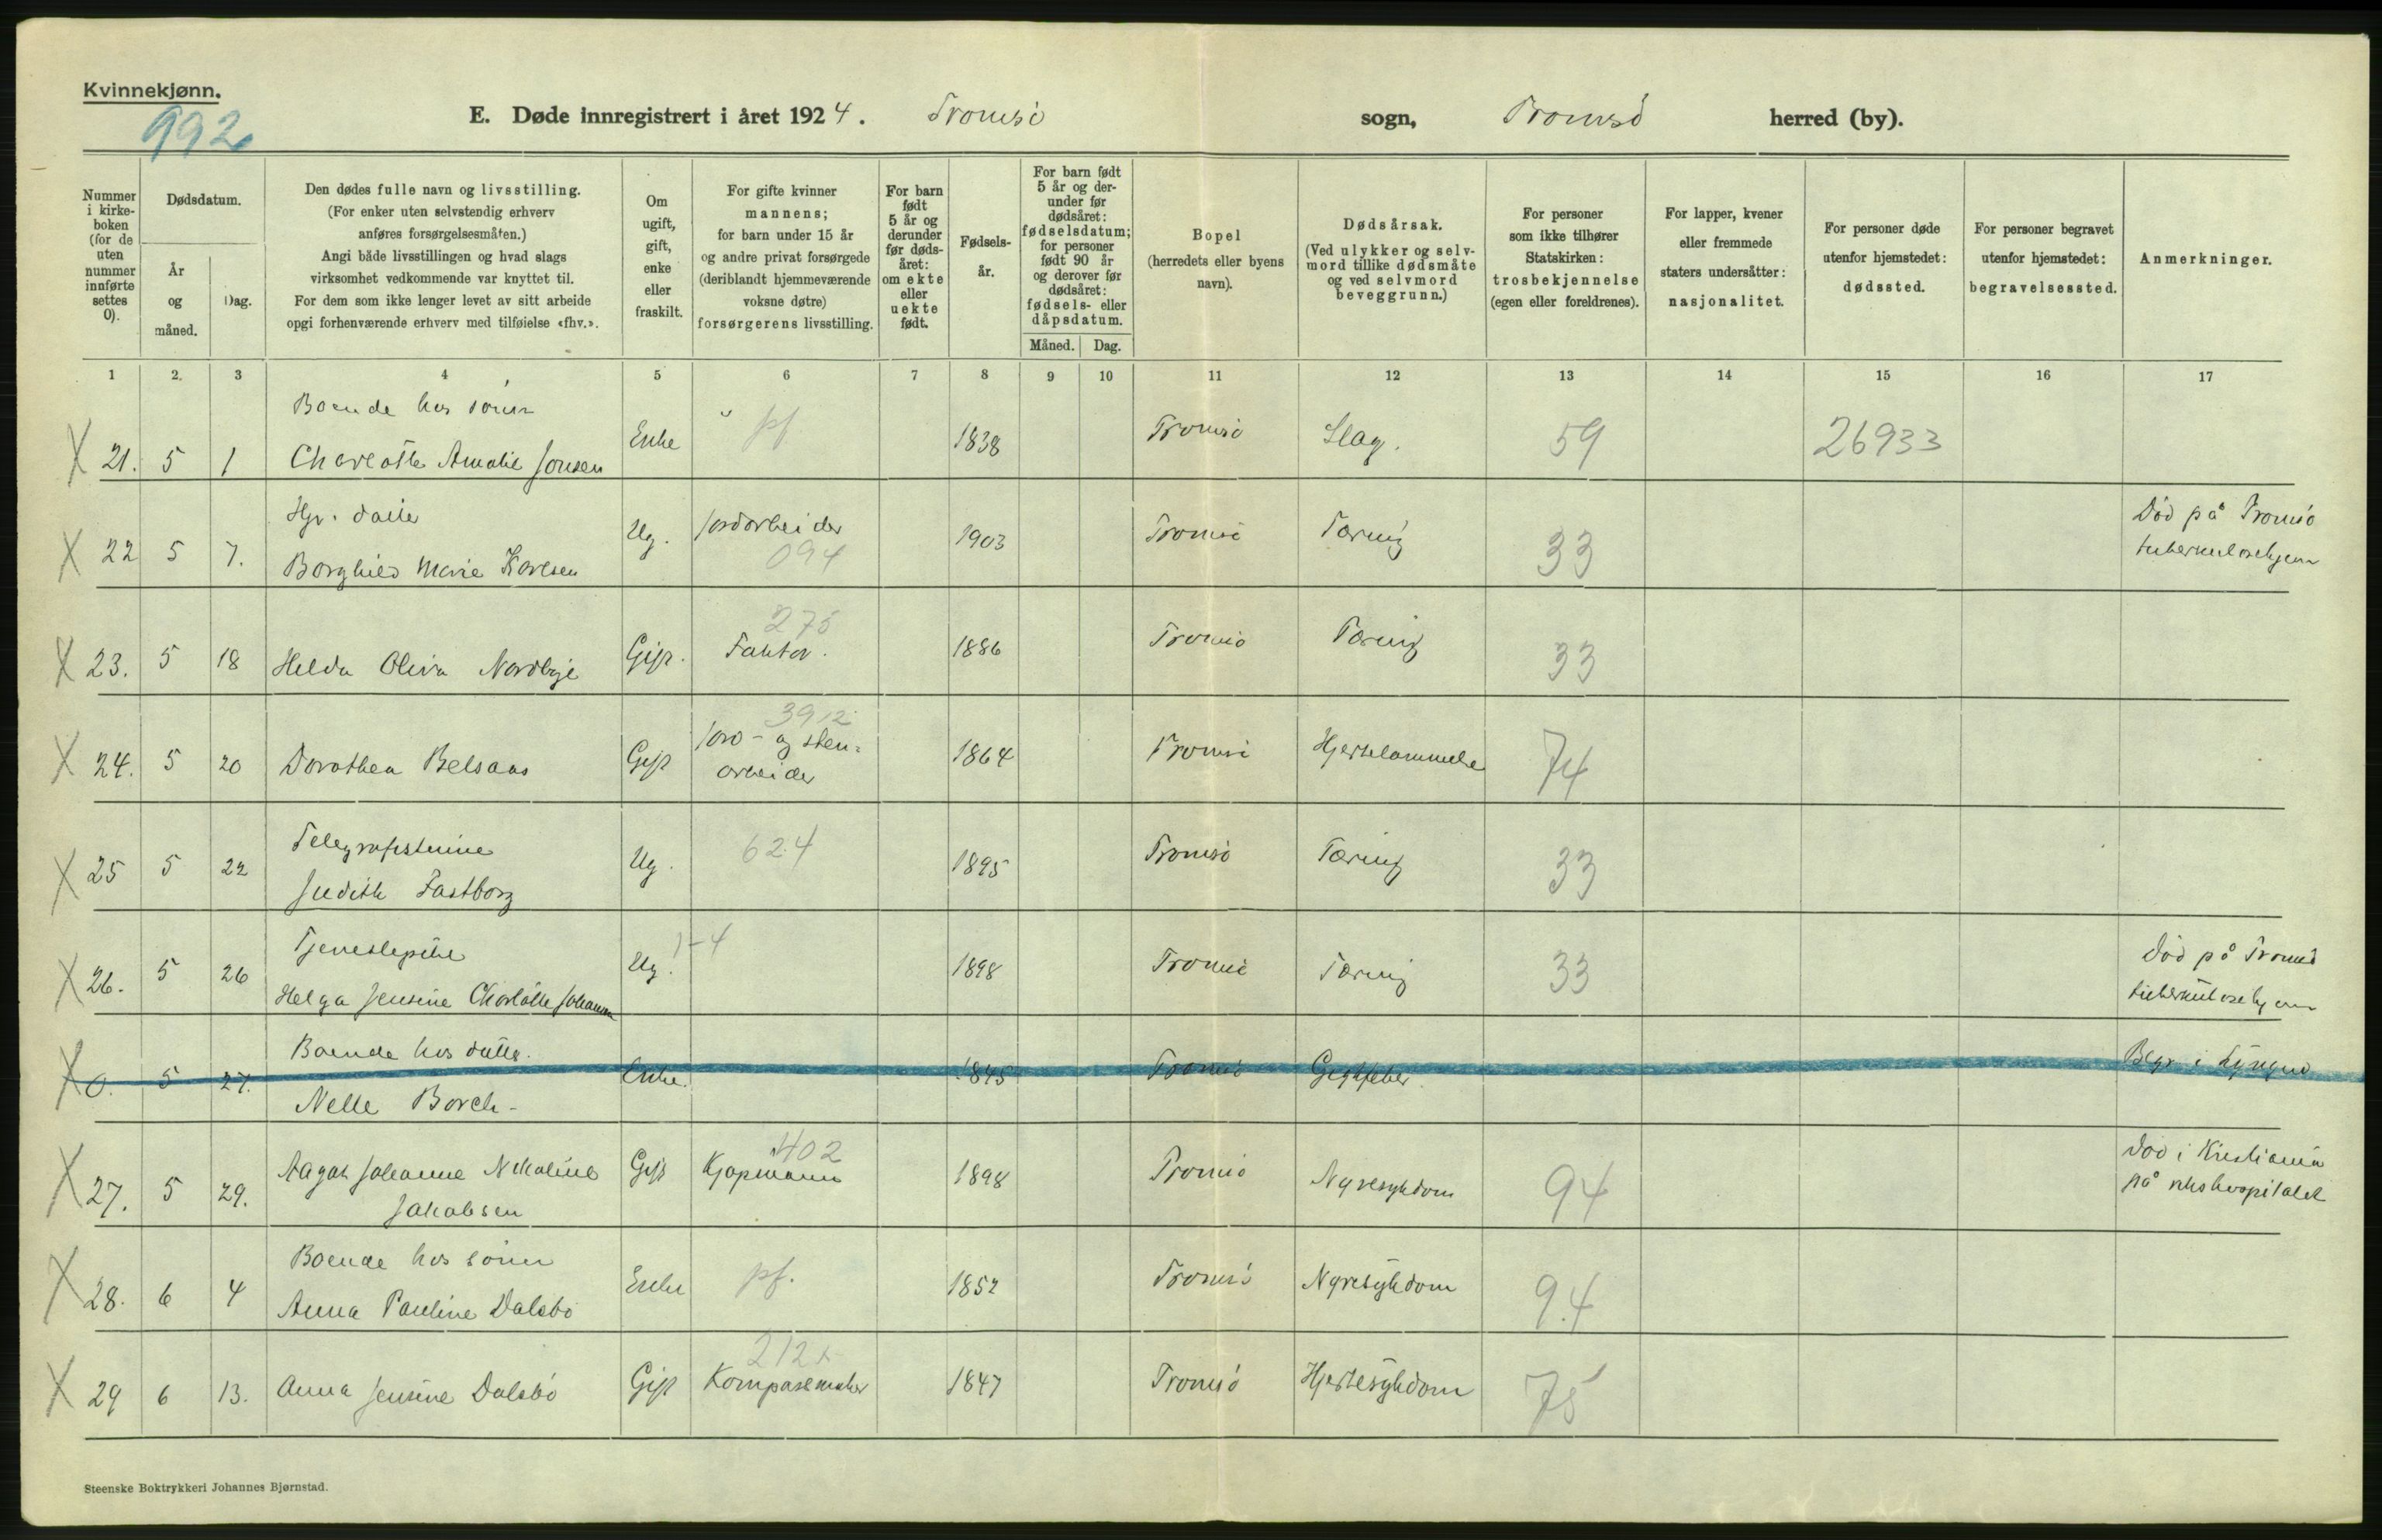 Kvinnekjønn.
992
E. Døde innregistrert i året 1924. Tromsö sogn, Tromsö herred (by).
Nummer i kirke-boken (for de uten nummer innførte settes 0).
Dødsdatum.
År og måned.
Dag.
Den dødes fulle navn og livsstilling.
(For enker uten selvstendig erhverv anføres forsørgelsesmåten.)
Angi både livsstillingen og hvad slags virksomhet vedkommende var knyttet til.
For dem som ikke lenger levet av sitt arbeide opgi forhenværende erhverv med tilføielse «fhv.».
Om ugift, gift, enke eller fraskilt.
For gifte kvinner mannens; for barn under 15 år og andre privat forsørgede (deriblandt hjemmeværende voksne døtre) forsørgerens livsstilling.
For barn født 5 år og derunder før døds-året: om ekte eller uekte født.
Fødsels-år.
For barn født 5 år og der-under før dødsåret: fødselsdatum; for personer født 90 år og derover før dødsåret: fødsels- eller dåpsdatum.
Måned. Dag.
Bopel (herredets eller byens navn).
Dødsårsak.
(Ved ulykker og selv-mord tillike dødsmåte og ved selvmord beveggrunn.)
For personer som ikke tilhører Statskirken: trosbekjennelse (egen eller foreldrenes).
For lapper, kvener eller fremmede staters undersåtter: nasjonalitet.
For personer døde utenfor hjemstedet: dødssted.
For personer begravet utenfor hjemstedet: begravelsessted.
Anmerkninger.
1 2. 3 4 5 6 7 8 9 10 11 12 13 14 15 16 17
Boende hos sönn
X 21. 5 1 Charlotte Amalie Jonsen Enke pf. 1838 Tromsö Slag. 59 26933
Hjv. datter
X 22 5 7. Borghild Marie Karlsen Ug. Jordarbeider 094 1903 Tromsö Tæring 33 Död på Tromsö tuberkulosehjem
275
X 23. 5 18 Helda Oliva Nordbye Gift. Faktor. 1886 Tromsö Tæring 33
3912
X 24. 5 20 Dorothea Belsaas Gift Jord- og sten-arbeider 1864 Tromsö Hjertelammelse 74
Telegrafistinne
X 25 5 22 Judith Fastborg Ug. 624 1895 Tromsö Tæring 33
Tjenestepike
X 26. 5 26 Helga Jensine Charlotte Johansen Ug. 1-4 1898 Tromsö Tæring 33 Död på Tromsö tuberkulosehjem
Boende hos datter.
X 0. 5 27. Nelle Borch - Enke. 1845 Tromsö Gigtfeber. Begr i Lyngen
402
X 27. 5 29. Aagot Johanne Nikoline Jakobsen Gift Kjøpmann 1898 Tromsö Nyresykdom 94 Död i Kristiania på rikshospitalet
Boende hos sönn
X 28. 6 4 Anna Pauline Dalsbö Enke pf. 1852 Tromsö Nyresykdom 94
212
X 29 6 13. Anna Jensine Dalsbö Gift Kompasmaker 1847 Tromsö Hjertesykdom 75
Steenske Boktrykkeri Johannes Bjørnstad.